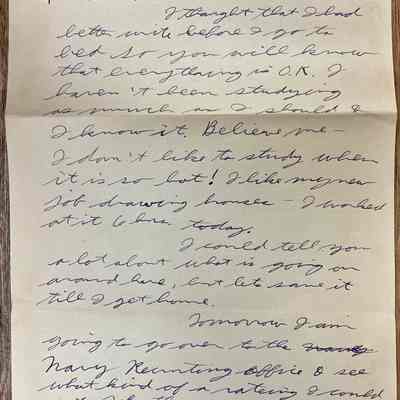 I thought that I had
better write before I go to
bed so you will know
that everything is O.K. I
haven't been studying
as much as I should &
I know it. Believe me -
I don't like to study when
it is so hot! I like my new
job drawing houses - I worked
at it 6 hrs. today.
I could tell you
a lot about what is going on
around here, but lets save it
till I get home.
Tomorrow I am
going to go over to the navy
Navy Recruiting office & see
what kind of a rateing I could